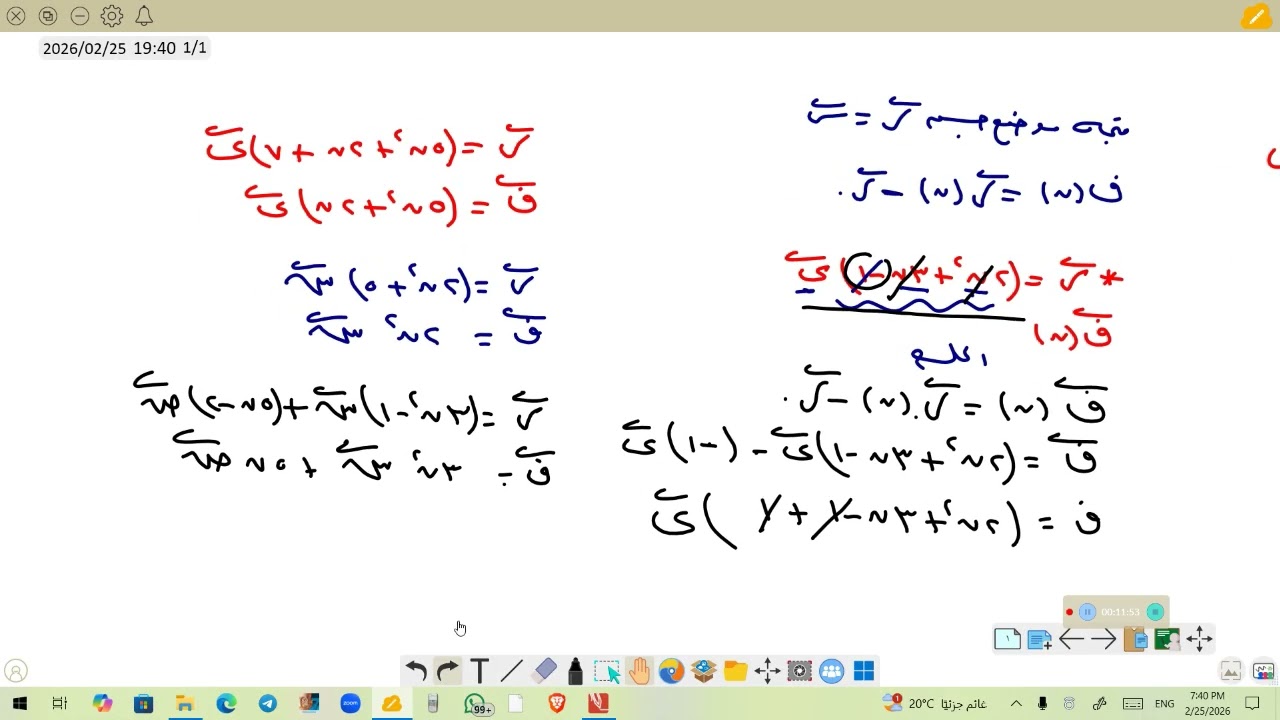 2026/02/25 19:40 1/1
متجه موضع جسم ر = س
ف(ن) = ر(ن) - ر.
* ر = (٢ن² + ٣ن - ١) ى
ف(ن)
ف(ن) = ر(ن) - ر.
ف = (٢ن² + ٣ن - ١) ى - (-١) ى
ف = (٢ن² + ٣ن - ١ + ١) ى
ر = (٥ن² + ٢ن + ٧) ى
ف = (٥ن² + ٢ن) ى
ر = (٢ن² + ٥) س
ف = ٢ن² س
ر = (٣ن² - ١) س + (٥ن - ٢) ص
ف = ٣ن² س + ٥ن ص
00:11:53
١
T
99+
zoom
20°C غائم جزئيًا
ENG
7:40 PM
2/25/2026